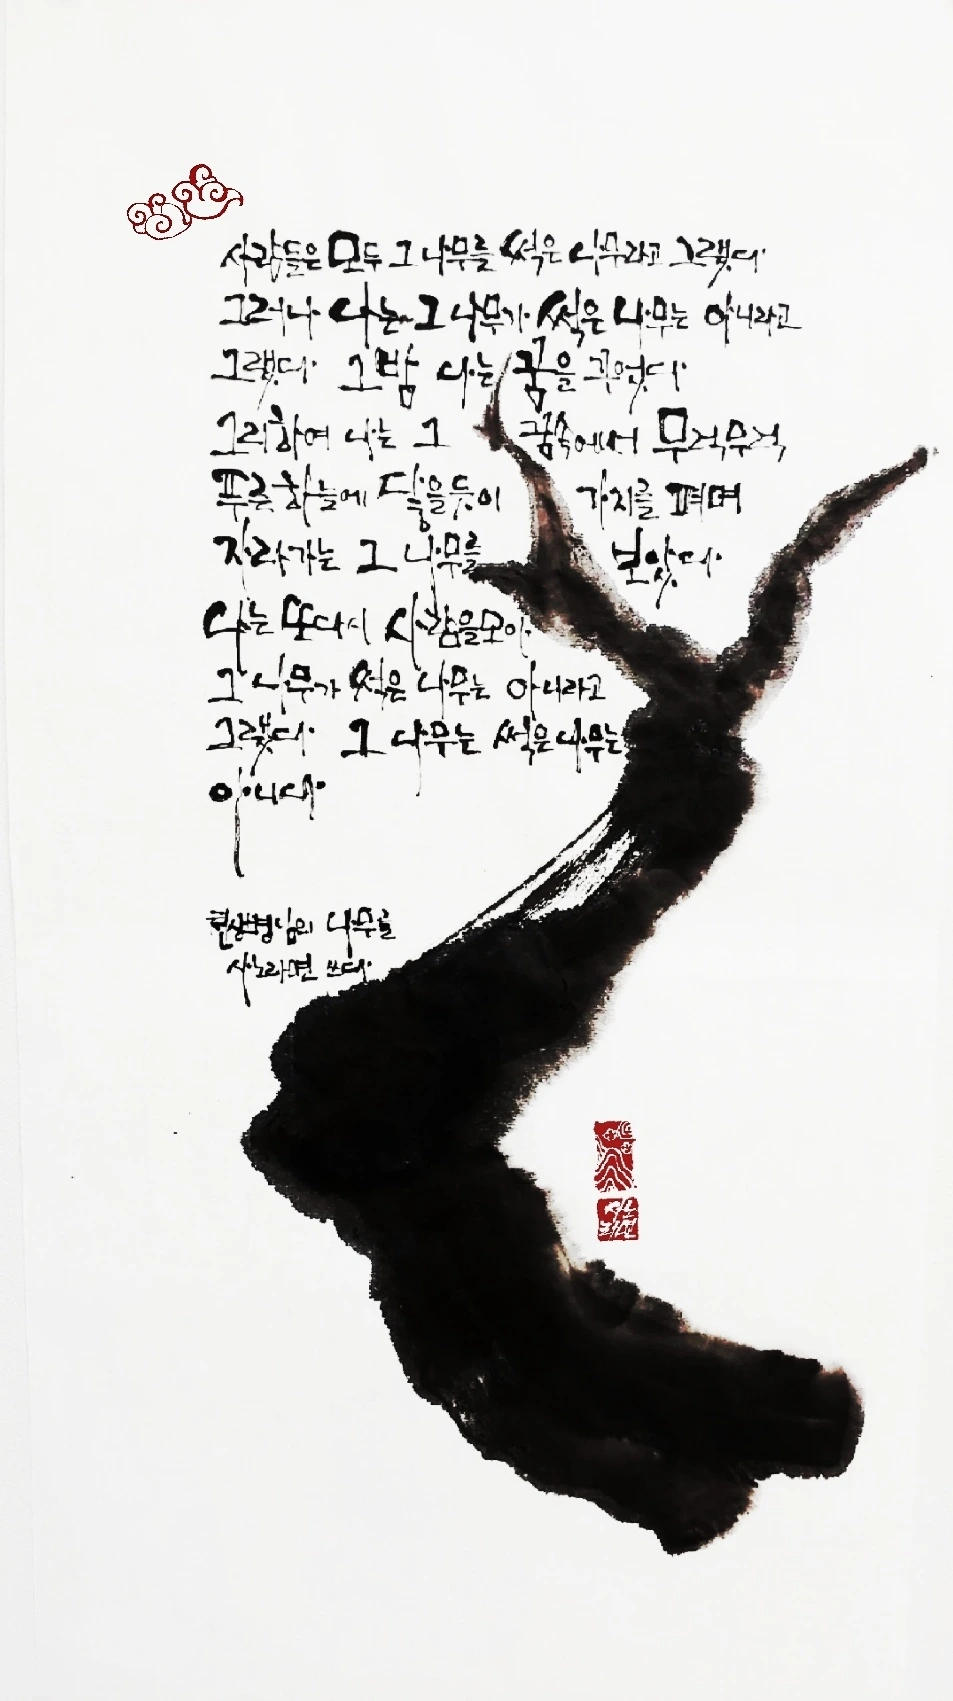 사람들은 모두 그 나무를 썩은 나무라고 그랬다.
그러나 나는 그 나무가 썩은 나무는 아니라고
그랬다. 그 밤 나는 꿈을 꾸었다.
그리하여 나는 그 꿈속에서 무럭무럭
푸른 하늘에 닿을듯이 가지를 펴며
자라가는 그 나무를 보았다.
나는 또다시 사람을 모아
그 나무가 썩은 나무는 아니라고
그랬다. 그 나무는 썩은 나무는
아니다.
님의 나무를
쓰다.